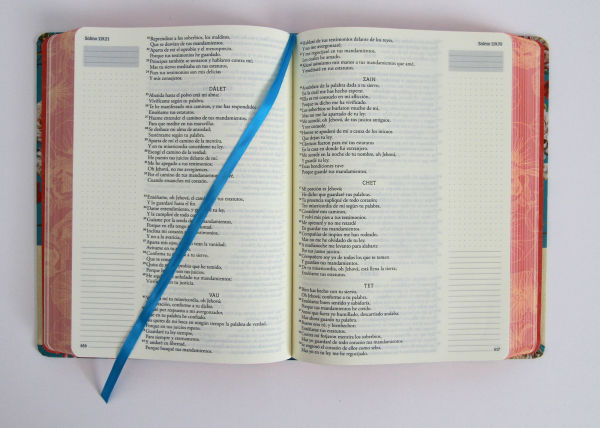 Salmo 119.21
21 Reprendiste a los soberbios, los malditos,
Que se desvían de tus mandamientos.
22 Aparta de mí el oprobio y el menosprecio,
Porque tus testimonios he guardado.
23 Príncipes también se sentaron y hablaron contra mí;
Mas tu siervo meditaba en tus estatutos,
24 Pues tus testimonios son mis delicias
Y mis consejeros.
DÁLET
25 Abatida hasta el polvo está mi alma;
Vivifícame según tu palabra.
26 Te he manifestado mis caminos, y me has respondido;
Enséñame tus estatutos.
27 Hazme entender el camino de tus mandamientos,
Para que medite en tus maravillas.
28 Se deshace mi alma de ansiedad;
Susténtame según tu palabra.
29 Aparta de mí el camino de la mentira,
Y en tu misericordia concédeme tu ley.
30 Escogí el camino de la verdad;
He puesto tus juicios delante de mí.
31 Me he apegado a tus testimonios;
Oh Jehová, no me avergüences.
32 Por el camino de tus mandamientos
Cuando ensanches mi corazón.
33 Enséñame, oh Jehová, el camino de tus estatutos,
Y lo guardaré hasta el fin.
34 Dame entendimiento, y guardaré tu ley,
Y la cumpliré de todo
35 Guíame por la senda de tus mandamientos,
Porque en ella tengo
36 Inclina mi corazón a tus testimonios,
Y no a la avaricia.
37 Aparta mis ojos, que no vean la vanidad;
Avívame en tu
38 Confirma tu palabra a tu siervo,
Que te
39 Quita de mí el oprobio que he temido,
Porque buenos son tus juicios.
40 He aquí yo he anhelado tus mandamientos;
en tu justicia.
VAU
a mí tu misericordia, oh Jehová;
Tu salvación, conforme a tu dicho.
por respuesta a mi avergonzador,
Que en tu palabra he confiado.
No quites de mi boca en ningún tiempo la palabra de verdad,
Porque en tus juicios espero.
44 Guardaré tu ley siempre,
Para siempre y eternamente.
45 Y andaré en libertad,
Porque busqué tus mandamientos.
Salmo 119.70
46 Hablaré de tus testimonios delante de los reyes,
Y no me avergonzaré;
47 Y me regocijaré en tus mandamientos,
Los cuales he amado.
48 Alzaré asimismo mis manos a tus mandamientos que amé,
Y meditaré en tus estatutos.
ZAIN
49 Acuérdate de la palabra dada a tu siervo,
En la cual me has hecho esperar.
50 Ella es mi consuelo en mi aflicción,
Porque tu dicho me ha vivificado.
51 Los soberbios se burlaron mucho de mí,
Mas no me he apartado de tu ley.
52 Me acordé, oh Jehová, de tus juicios antiguos,
Y me consolé.
53 Horror se apoderó de mí a causa de los inicuos
Que dejan tu ley.
54 Cánticos fueron para mí tus estatutos
En la casa en donde fui extranjero.
55 Me acordé en la noche de tu nombre, oh Jehová,
Y guardé tu ley.
56 Estas bendiciones tuve
Porque guardé tus mandamientos.
CHET
57 Mi porción es Jehová;
He dicho que guardaré tus palabras.
58 Tu presencia supliqué de todo corazón;
Ten misericordia de mí según tu palabra.
59 Consideré mis caminos,
Y volví mis pies a tus testimonios.
60 Me apresuré y no me retardé
En guardar tus mandamientos.
61 Compañías de impíos me han rodeado,
Mas no me he olvidado de tu ley.
62 A medianoche me levanto para alabarte
Por tus justos juicios.
63 Compañero soy yo de todos los que te temen
Y guardan tus mandamientos.
64 De tu misericordia, oh Jehová, está llena la tierra;
Enséñame tus estatutos.
TET
65 Bien has hecho con tu siervo,
Oh Jehová, conforme a tu palabra.
66 Enséñame buen sentido y sabiduría,
Porque tus mandamientos he creído.
67 Antes que fuera yo humillado, descarriado andaba;
Mas ahora guardo tu palabra.
68 Bueno eres tú, y bienhechor;
Enséñame tus estatutos.
69 Contra mí forjaron mentira los soberbios,
Mas yo guardaré de todo corazón tus mandamientos.
70 Se engrosó el corazón de ellos como sebo,
Mas yo en tu ley me he regocijado.